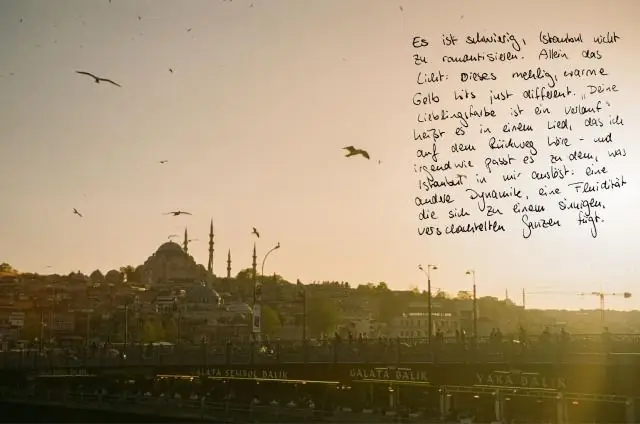 Es ist schwierig, Istanbul nicht
zu romantisieren. Allein das
Licht: Dieses mehlig, warme
Gelb hits just different. „Deine
Lieblingsfarbe ist ein Verlauf"
heißt es in einem Lied, das ich
auf dem Rückweg höre - und
irgendwie passt es zu dem, was
Istanbul in mir auslöst: eine
andere Dynamik, eine Fluidität
die sich zu einem sinnigen,
verschachtelten Ganzen fügt.
ALATA SEMBOL BALIK
GALATA BALIK
YAKA BALIK